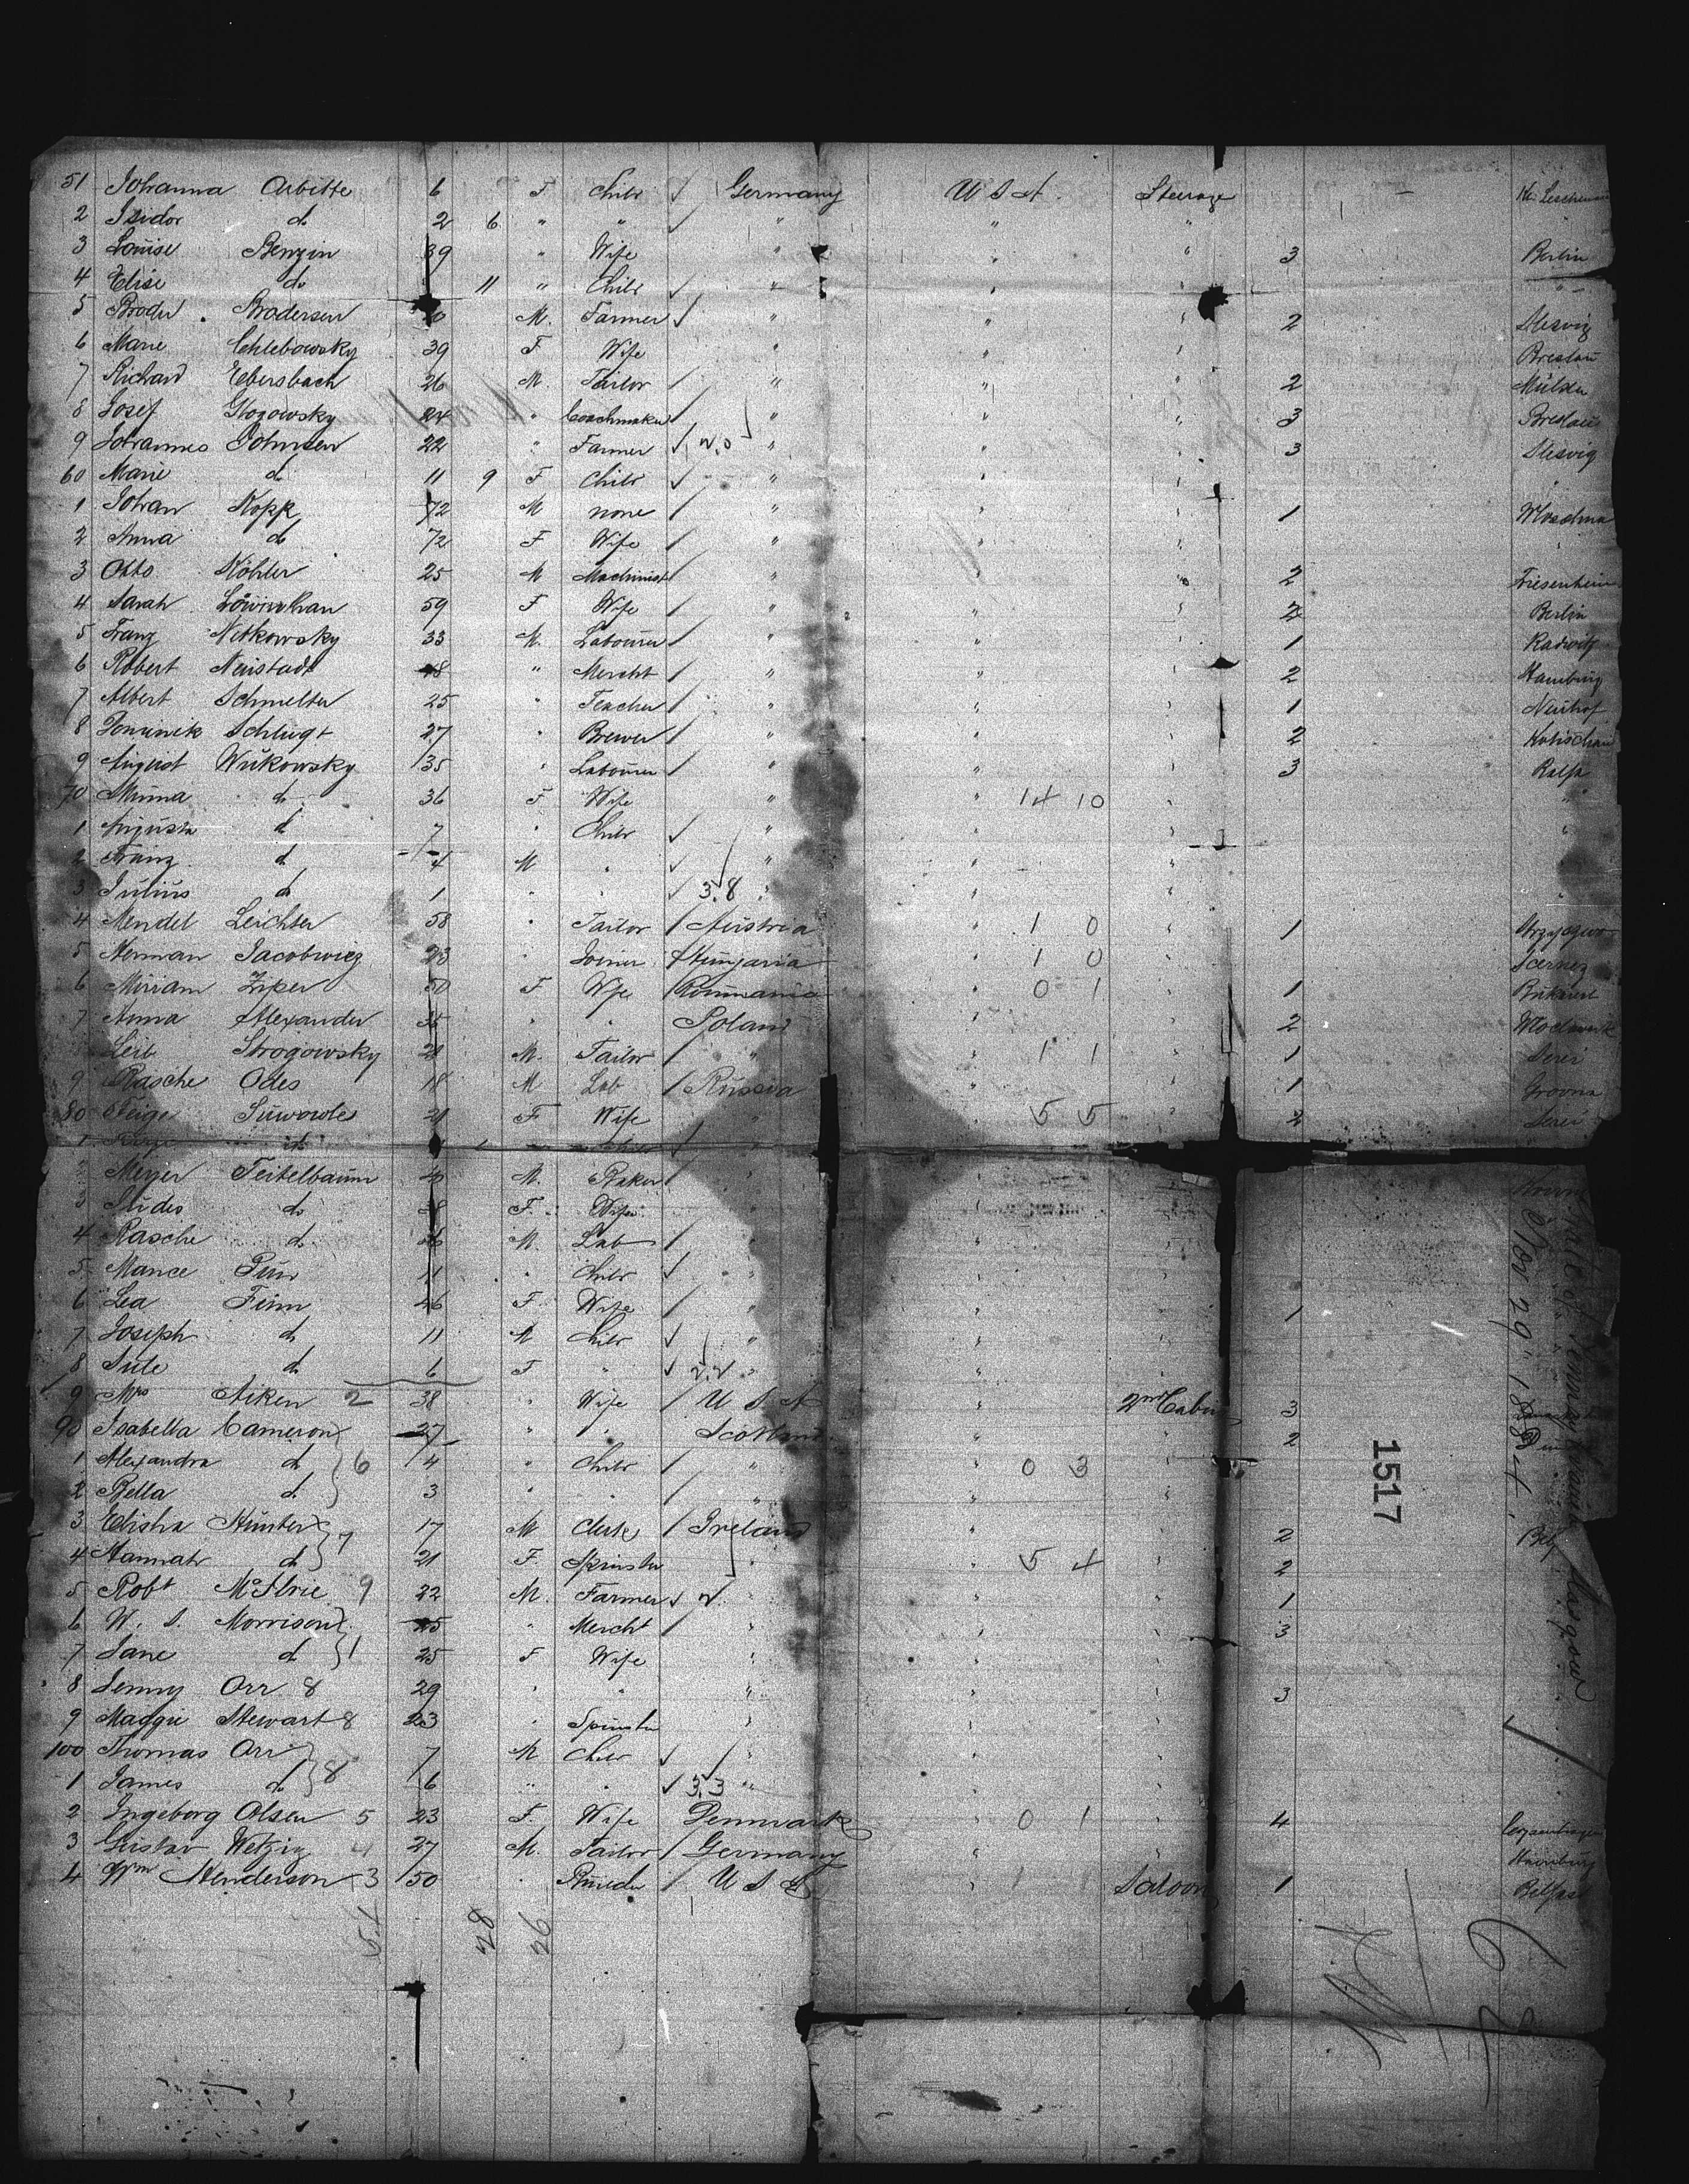 51 Johanna Arbitte 6 F Child Germany U S A. Steerage
2 Isidor do 2 6 " " " "
3 Louise Benzin 39 " Wife " " " 3 Berlin
4 Elise do 11 " Child " " " "
5 Broder Brodersen M. Farmer " " " 2 Slesvig
6 Marie Chlebowsky 39 F Wife " " " Breslau
7 Richard Ebersbach 26 M. Tailor " " " 2 Mülsen
8 Josef Glogowsky 24 " Coachmaker " " " 3 Breslau
9 Johannes Johnsen 22 " Farmer " " " 3 Slesvig
60 Marie do 11 9 F Child " " "
1 Johan Kopp 72 M none " " " 1
2 Anna do 72 F Wife " " "
3 Otto Köhler 25 M Machinist " " " 2 Friesenheim
4 Sarah 59 F Wife " " " 2 Berlin
5 Franz Nitkowsky 33 M. Labourer " " " 1 Radwitz
6 Robert Neustadt 48 " Mercht " " " 2 Hamburg
7 Albert Schmelter 25 " Teacher " " " 1 Neuhof
8 Dominik Schlugt 27 " Brewer " " " 2
9 August Wukowsky 35 " Labourer " " " 3
70 Minna do 36 F Wife " " 14 10 " "
1 Augusta do 7 " Child " " " "
2 Franz do 4 M " " " "
3 Julius do 1 " " 3.8 " " " "
4 Mendel Leichter 58 " Tailor Austria " 1 0 " 1
5 Herman Jacobwicz 23 " Joiner Hungaria " 1 0 "
6 Miriam Ziper 50 F Wife Roumania " 0 1 " 1 Bukarest
7 Anna Alexander 35 " " Poland " " 2
Leib Strogowsky 21 M. Tailor " " 1 1 " 1 Serei
9 Rasche Odes 18 M Lab Russia " " 1 Grodna
80 Feige Suwowle 21 F Wife " " 5 5 " 2 Serei
1 do
2 Meyer Teitelbaum M. Baker " " "
3 do F. Wife " " "
4 Rasche do M. Lab " " "
5 Mance 11 " Child " " "
6 Lea Finn 46 F. Wife " " " 1
7 Joseph do 11 M Child " " "
8 Sute do 6 F " 2.2 " " "
9 Mrs Aiken 2 38 " Wife U S A " 2nd Cabin 3
90 Isabella Cameron 27 " " Scotland " " 2
1 Alexandra do 6 4 " Child " " 0 3 "
2 Bella do 3 " " " " "
3 Elisha Hunter 17 M Clerk Ireland " " 2 Belf
4 Hannah do 7 21 F. Spinster " " 5 4 " 2
5 Robt 9 22 M. Farmer " " " 1
6 W. S. Morrison 45 " Mercht " " " 3
7 Jane do 1 25 F Wife " " "
8 Jenny Orr 8 29 " " " " " 3
9 Maggie Stewart 8 23 " Spinster " " "
100 Thomas Orr 7 M Child " " "
1 James do 8 6 " " 3.3 " " "
2 Ingeborg Olsen 5 23 F. Wife Denmark " 0 1 " 4
3 Gustav Wetzig 4 27 M. Tailor Germany " " Hamburg
4 Wm Henderson 3 50 " U S A " 1 1 Saloon 1 Belfast
54 28 26
Nov 29. 1884.
1517